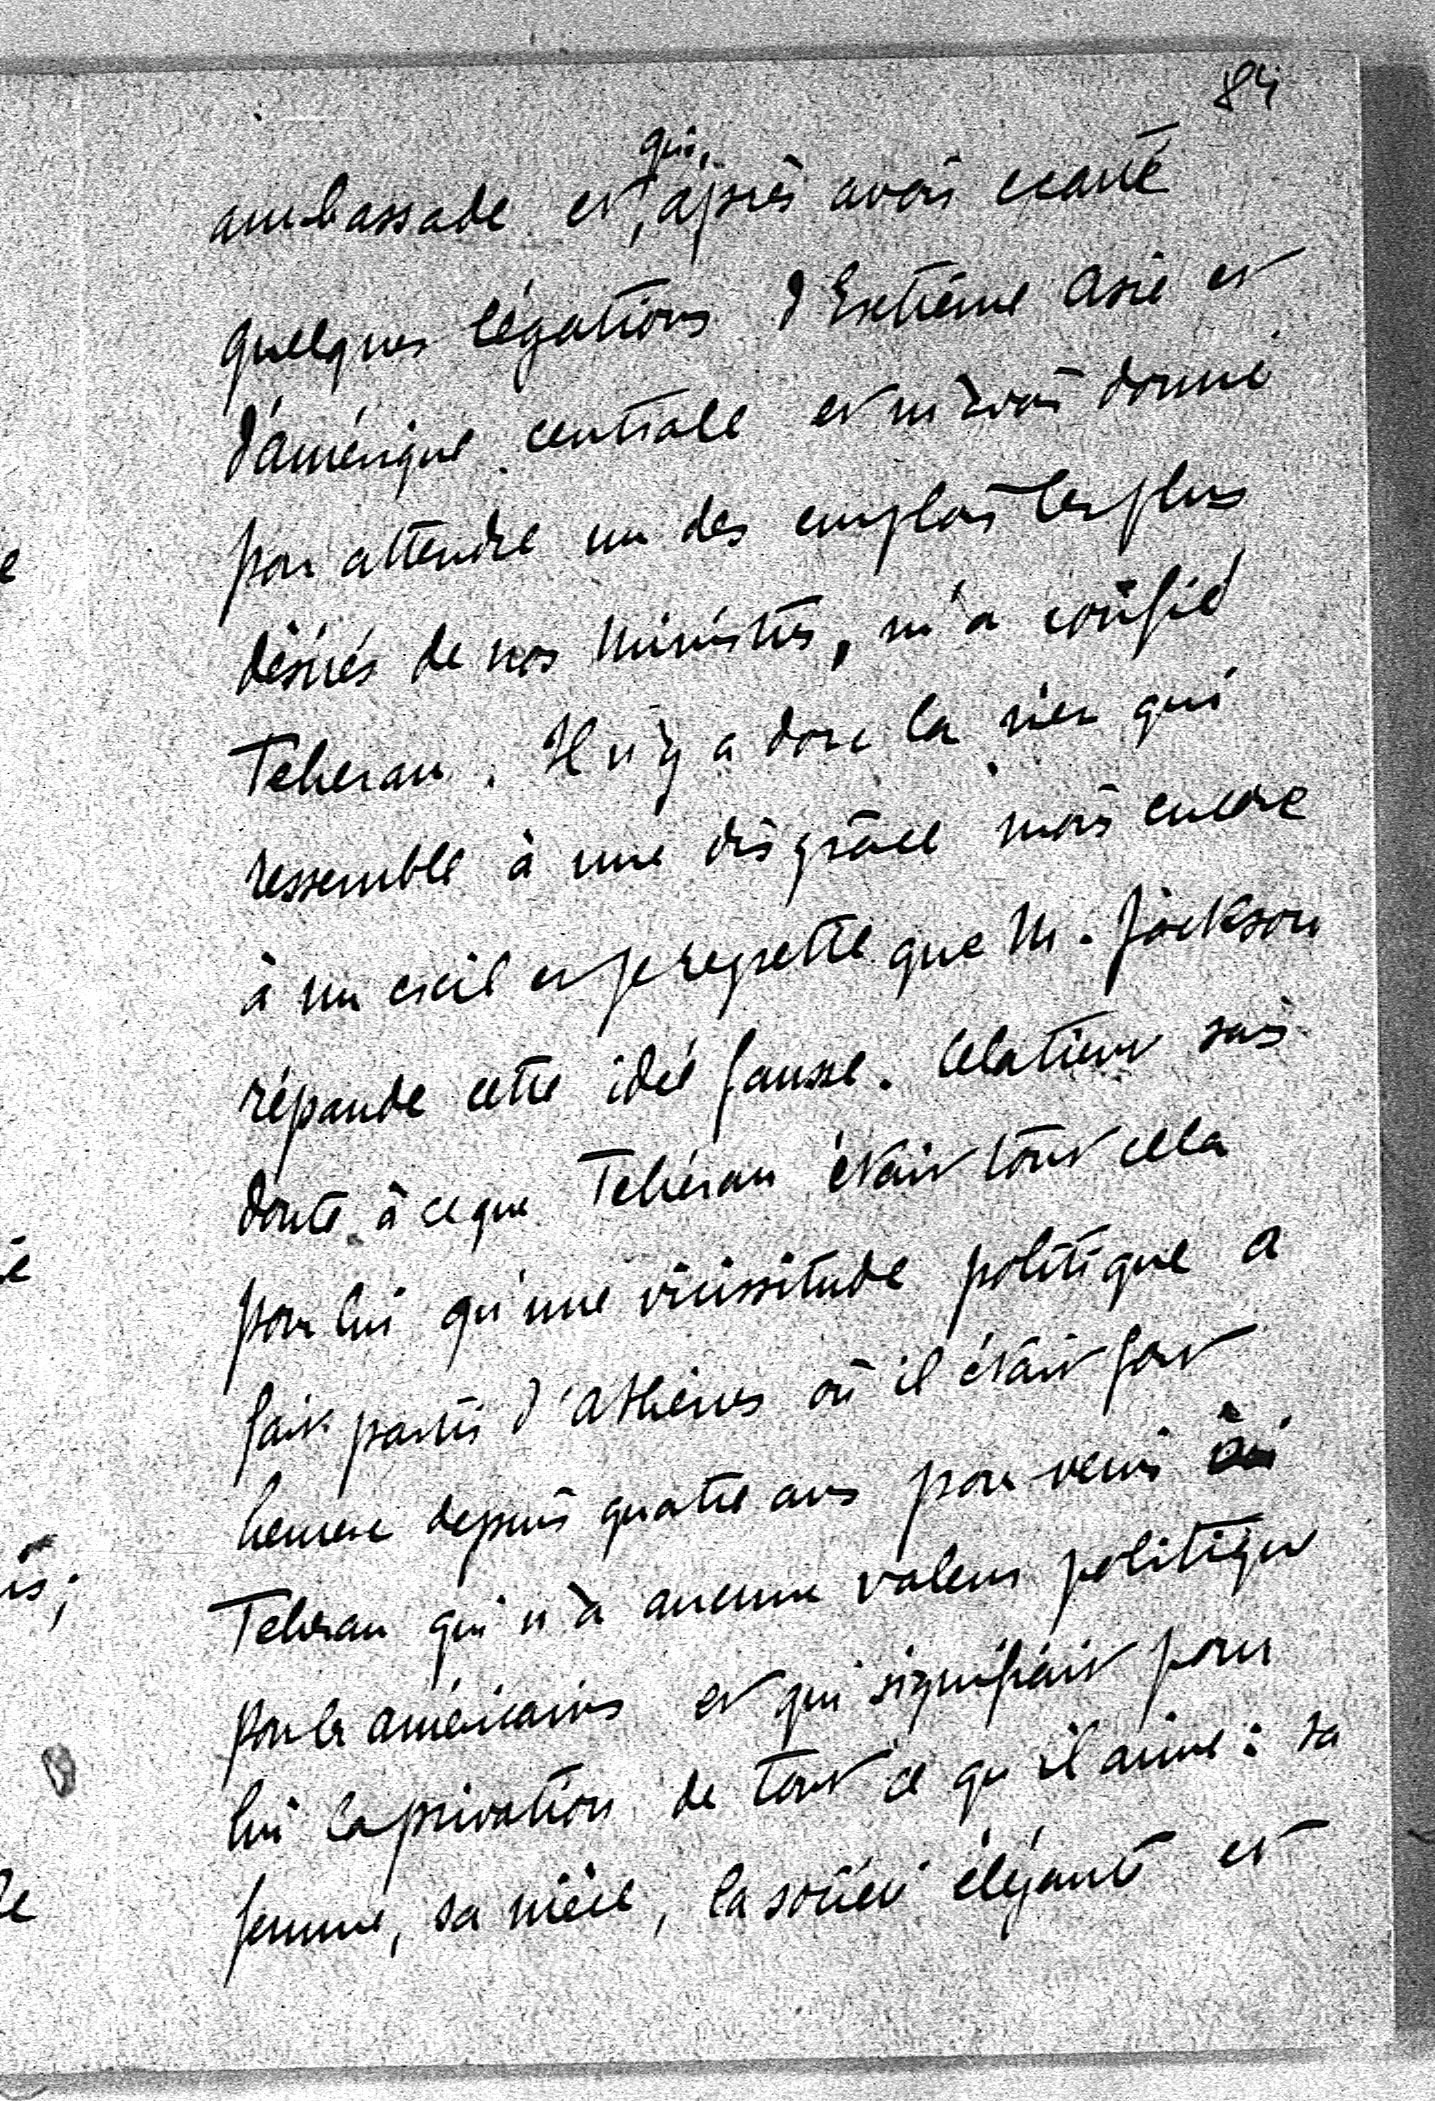 84
qui,
ambassade et, après avoir écarté
quelques légations d'Extrême Asie et
d'Amérique centrale et m'avoir donné
pour attendre un des emplois les plus
désirés de nos Ministres, m'a confié
Teheran. Il n'y a donc là rien qui
ressemble à une disgrâce moins encore
à un exil et je regrette que M. Jackson
répande cette idée fausse. Cela tient sans
doute à ce que Téhéran était tout cela
pour lui qu'une vicissitude politique a
fait partir d'Athènes où il était fort
heureux depuis quatre ans pour venir à
Teheran qui n'a aucune valeur politique
pour les américains et qui signifiait pour
lui la privation de tout ce qu'il aime : sa
femme, sa mère, la société élégante et
e
is;
le